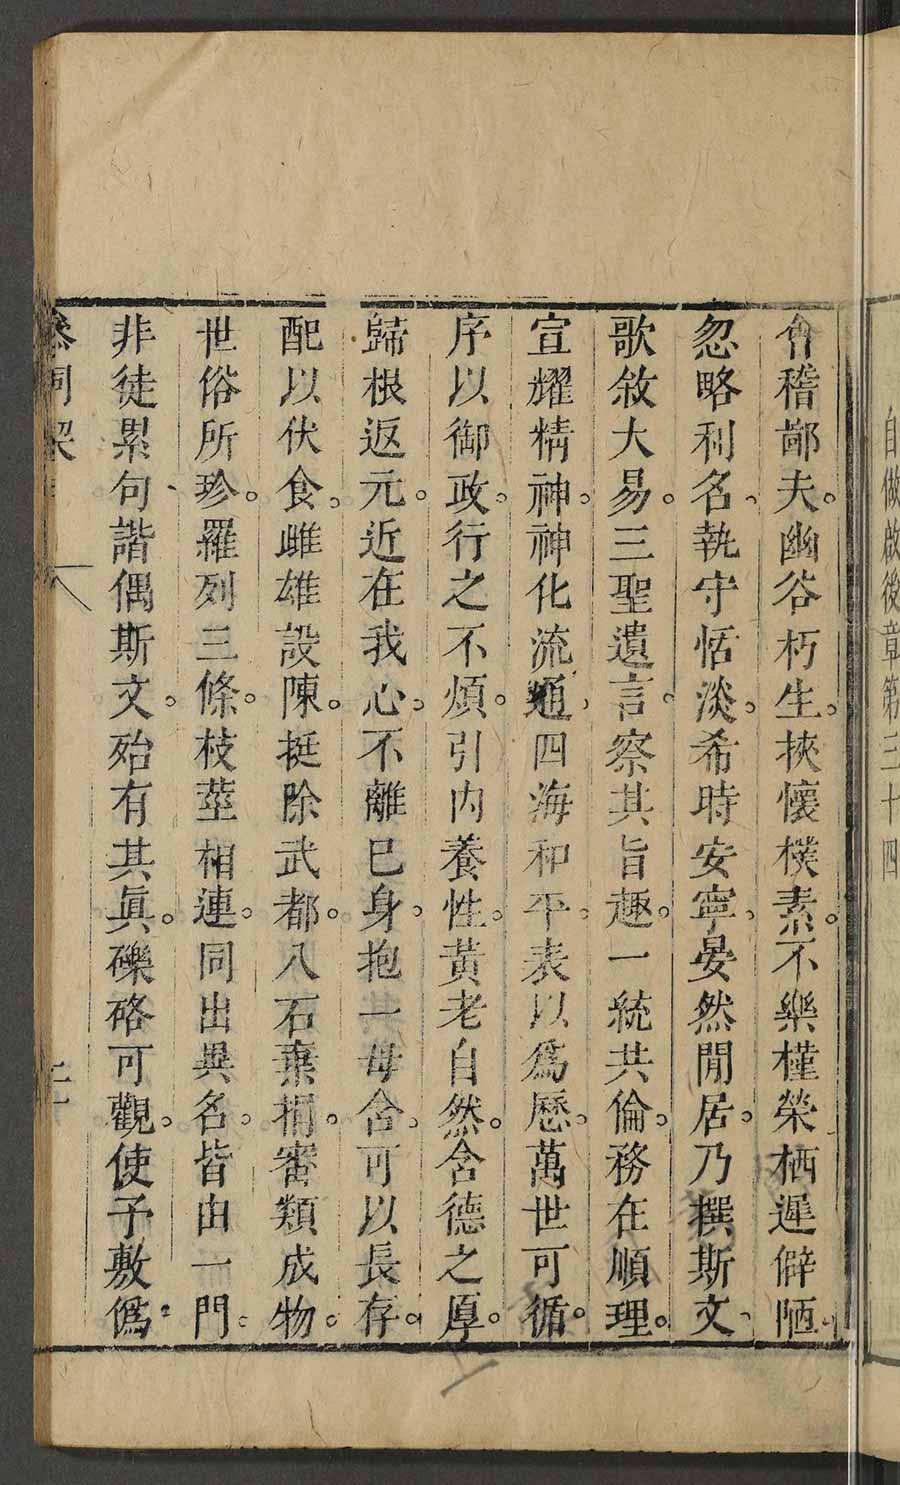 自倣啟後章第三十四
會稽鄙夫。幽谷朽生。挾懷樸素。不樂權榮栖遲僻陋。
忽略利名、執守恬淡。希時安寧、晏然閒居。乃撰斯文、
歌敘大易。三聖遺言。察其旨趣。一統共倫。務在順理。
宣耀精神。神化流通、四海和平。表以為曆。萬世可循。
序以御政。行之不煩。引內養性。黃老自然。含德之厚。
歸根返元。近在我心。不離已身。抱一毋舍。可以長存。
配以伏食。雌雄設陳。挺除武都。八石棄捐。審類成物。
世俗所珍。羅列三條。枝莖相連。同出異名。皆由一門。
非徒累句、諧偶斯文。殆有其眞。礫硌可觀。使予敷僞。
參同契